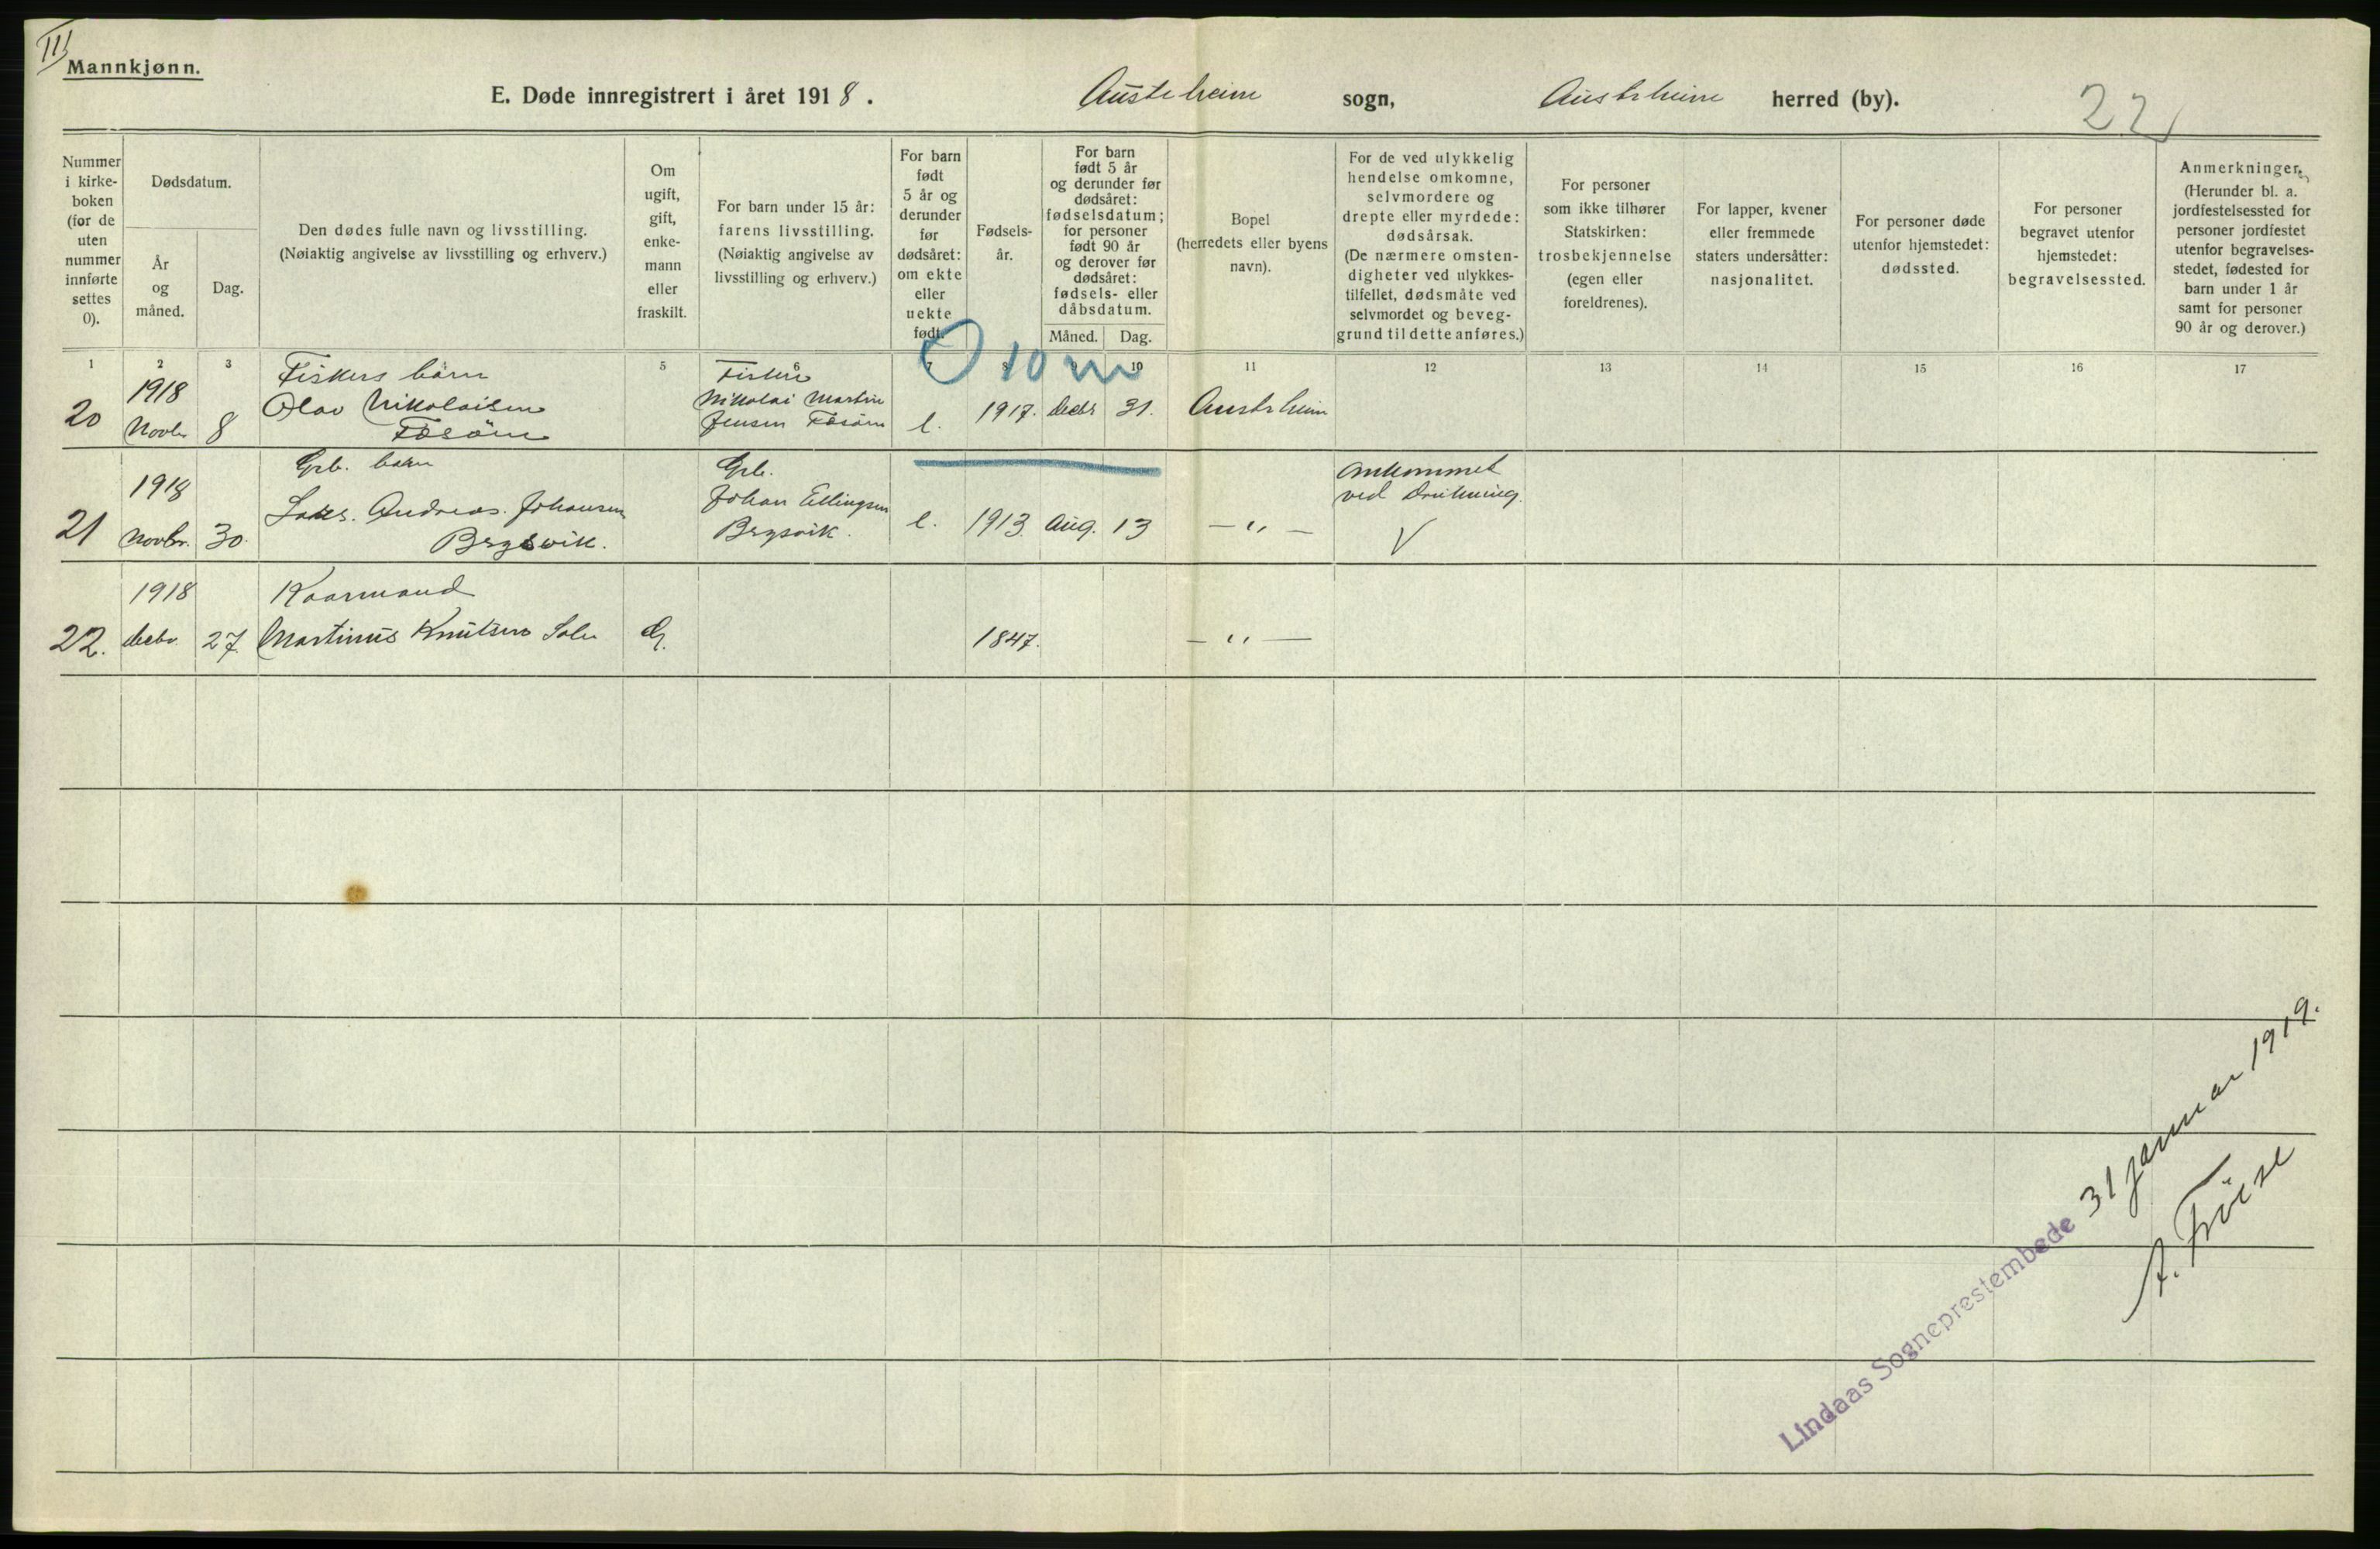 III
Mannkjønn.
E. Døde innregistrert i året 1918.
Austrheim sogn, Austrheim herred (by).
22
Nummer i kirke-boken (for de uten nummer innførte settes 0).
Dødsdatum.
År og måned.
Dag.
Den dødes fulle navn og livsstilling.
(Nøiaktig angivelse av livsstilling og erhverv.)
Om ugift, gift, enke-mann eller fraskilt.
For barn under 15 år: farens livsstilling. (Nøiaktig angivelse av livsstilling og erhverv.)
For barn født 5 år og derunder før dødsåret: om ekte eller uekte født.
Fødsels-år.
For barn født 5 år og derunder før dødsåret: fødselsdatum; for personer født 90 år og derover før dødsåret: fødsels- eller dåbsdatum.
Måned. Dag.
Bopel (herredets eller byens navn).
For de ved ulykkelig hendelse omkomne, selvmordere og drepte eller myrdede: dødsårsak. (De nærmere omsten-digheter ved ulykkes-tilfellet, dødsmåte ved selvmordet og beveg-grund til dette anføres.)
For personer som ikke tilhører Statskirken: trosbekjennelse (egen eller foreldrenes).
For lapper, kvener eller fremmede staters undersåtter: nasjonalitet.
For personer døde utenfor hjemstedet: dødssted.
For personer begravet utenfor hjemstedet: begravelsessted.
Anmerkninger. (Herunder bl. a. jordfestelsessted for personer jordfestet utenfor begravelses-stedet, fødested for barn under 1 år samt for personer 90 år og derover.)
1 2 3 5 6 7 8 10 11 12 13 14 15 16 17
0 10 m
Fiskers børn
Fisker
1918
Olav Nikolaisen
Nikolai Martin
20 Novbr 8 Fosøen Jensen Fosøen e. 1917. Decbr 31. Austrheim
Grb. barn
Grb.
omkommet
1918
Johan Ellingsen
ved Drukning.
Andreas Johansen
21 Novbr. 30. Bergsvik. Bergsvik. e. 1913. Aug. 13 — " — V
1918
Kaarmand
22. Decbr. 27. Martinus Knutsen G. 1847. — " —
Lindaas Sogneprestembede 31 januar 1919.